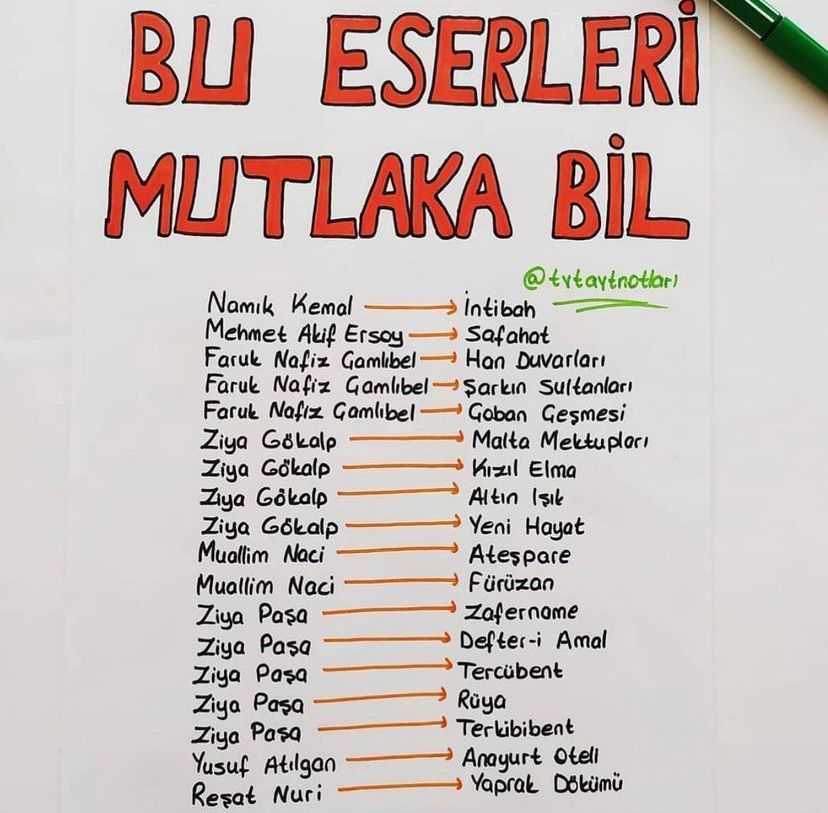 BU ESERLERİ
MUTLAKA BİL
@tytaytnotları
Namık Kemal → İntibah
Mehmet Akif Ersoy → Safahat
Faruk Nafiz Çamlıbel → Han Duvarları
Faruk Nafiz Çamlıbel → Şarkın Sultanları
Faruk Nafiz Çamlıbel → Çoban Çeşmesi
Ziya Gökalp → Malta Mektupları
Ziya Gökalp → Kızıl Elma
Ziya Gökalp → Altın Işık
Ziya Gökalp → Yeni Hayat
Muallim Naci → Ateşpare
Muallim Naci → Fürüzan
Ziya Paşa → Zafername
Ziya Paşa → Defter-i Amal
Ziya Paşa → Tercübent
Ziya Paşa → Rüya
Ziya Paşa → Terkibibent
Yusuf Atılgan → Anayurt Oteli
Reşat Nuri → Yaprak Dökümü